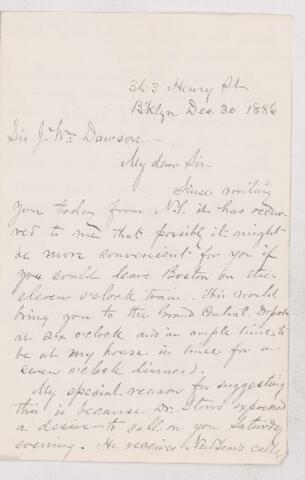 363 Henry St
B'klyn Dec 30 1886
Sir J. Wm Dawson
My dear Sir
Since writing
you today from N.Y. it has occur-
red to me that possibly it might
be more convenient for you if
you could leave Boston on the
eleven o'clock train. This would
bring you to the Grand Central Depot
at six o'clock and in ample time to
be at my house in time for a
seven o'clock dinner.
My special reason for suggesting
this is because Dr. Storrs expressed
a desire to call on you Saturday
evening. He receives New Year's calls